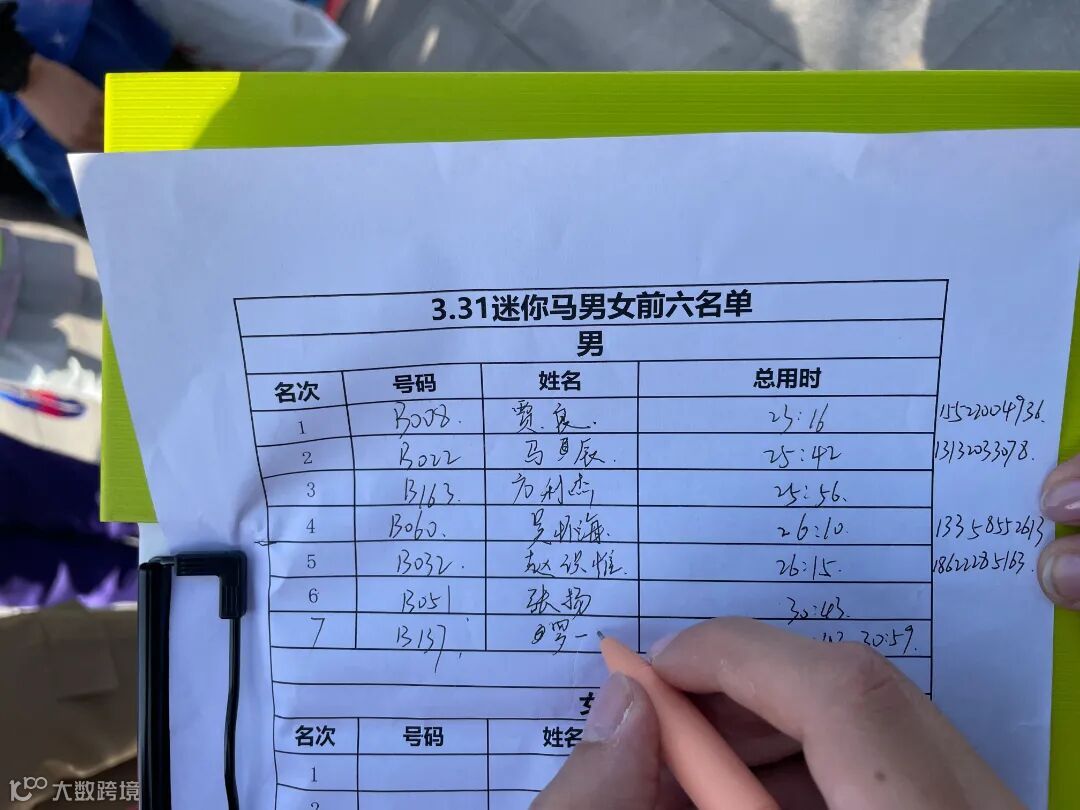 3.31迷你马男女前六名单
男
名次 号码 姓名 总用时
1 B008. 贾良. 25:16 15522004936.
2 B022 马 辰. 25:42 13132033078.
3 B163. 方利杰 25:56.
4 B060. 吴 海. 26:10. 13358552613
5 B032. 赵 26:15. 18622285163.
6 B051 张扬 30:43.
7 B137. 罗一 30:59.
名次 号码 姓名
1
大数跨境